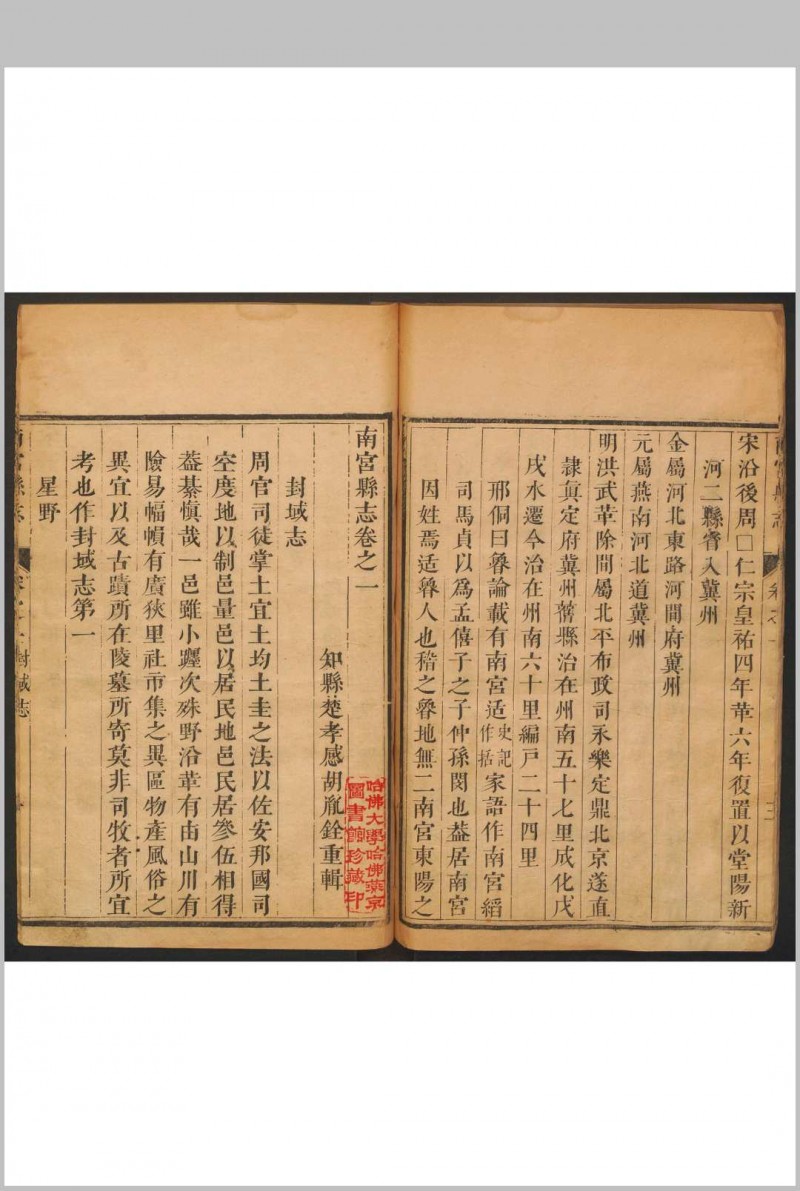 宋沿後周□仁宗皇祐四年革六年復置以堂陽新
河二縣省入冀州
金屬河北東路河間府冀州
元屬燕南河北道冀州
明洪武革除間屬北平布政司永樂定鼎北京遂直
隸真定府冀州舊縣治在州南五十七里成化戊
戌水遷今治在州南六十里編戸二十四里
邢侗曰魯論載有南宮适史記作括家語作南宮縚
司馬貞以為孟僖子之子仲孫閱也葢居南宮
因姓焉适魯人也稽之魯地無二南宮東陽之
南宮縣志卷之一
知縣楚孝感胡胤銓重輯
封域志
周官司徒掌土宜土均土圭之法以佐安邦國司
空度地以制邑量邑以居民地邑民居參伍相得
葢綦愼哉一邑雖小躔次殊野沿革有由山川有
險易幅幀有廣狹里社市集之異區物產風俗之
異宜以及古蹟所在陵墓所寄莫非司牧者所宜
考也作封域志第一
星野
南宮縣志
卷之一封域志
哈佛大學哈佛燕京
圖書館珍藏印